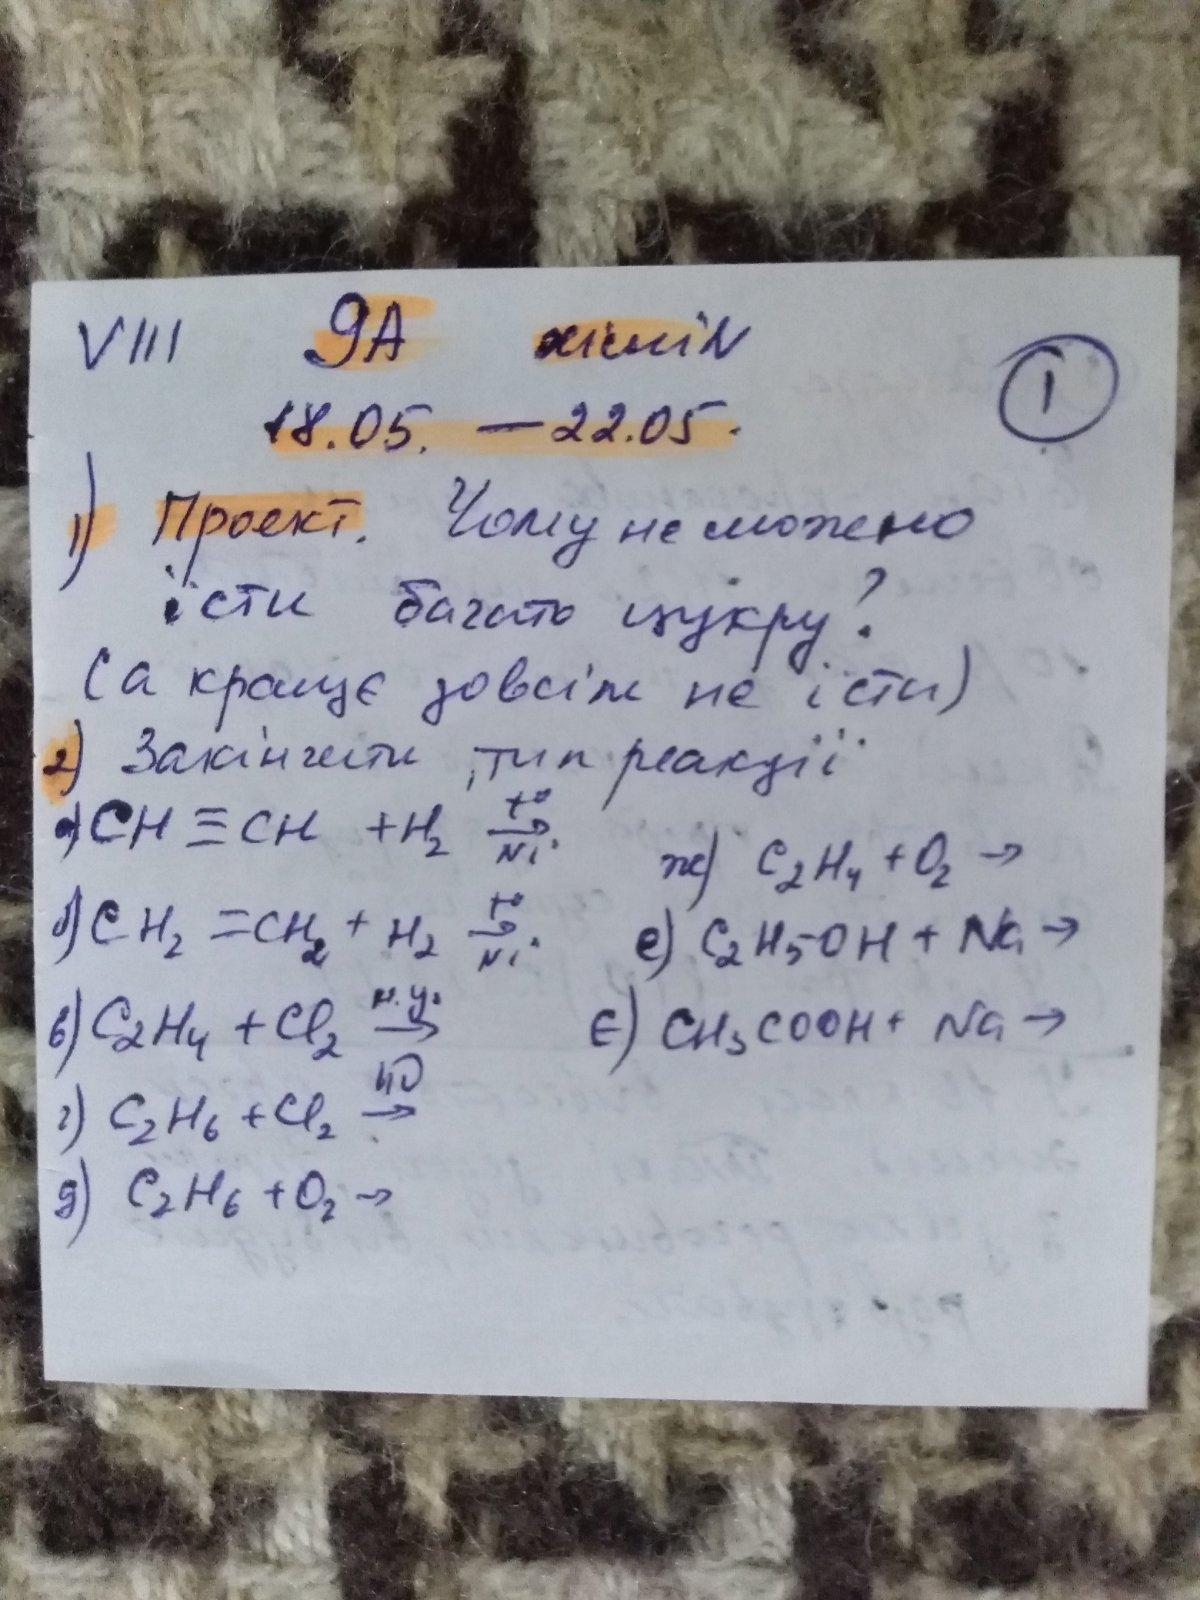 VIII 9А хімія
18.05. — 22.05.
1
1) Проект. Чому не можено
їсти багато цукру?
(а кращє зовсім не їсти)
2) Закінчити, тип реакції
а) CH ≡ CH + H₂ →(t°, Ni)
б) CH₂ = CH₂ + H₂ →(t°, Ni)
в) C₂H₄ + Cl₂ →(н.у.)
г) C₂H₆ + Cl₂ →(hν)
д) C₂H₆ + O₂ →
ж) C₂H₄ + O₂ →
е) C₂H₅OH + Na →
є) CH₃COOH + Na →